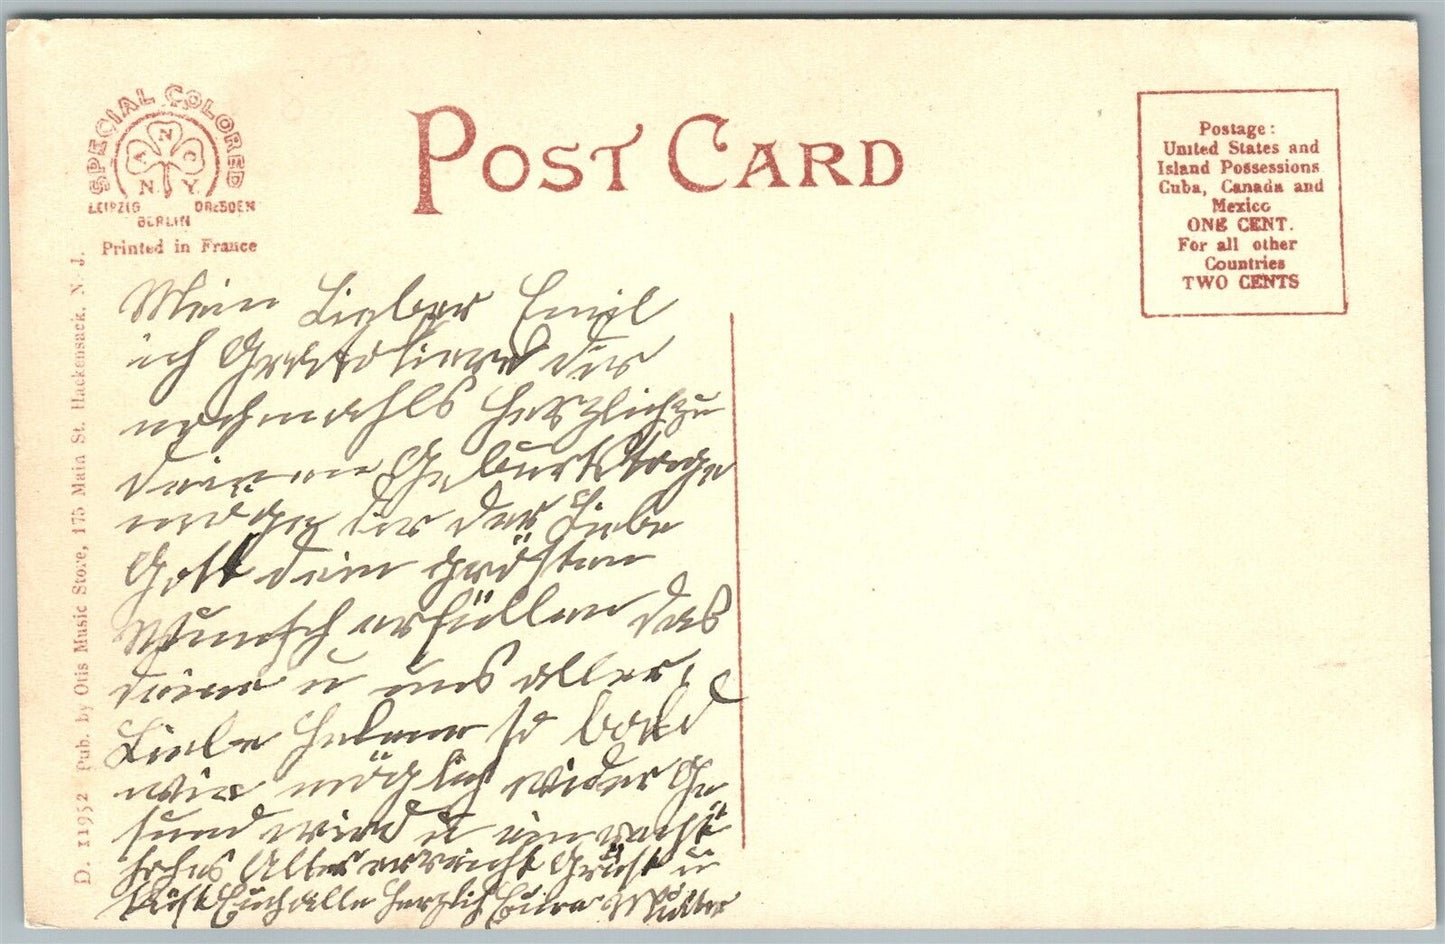 SPECIAL COLORED
A N C
N. Y.
LEIPZIG DRESDEN
BERLIN
Printed in France
POST CARD
Postage:
United States and
Island Possessions
Cuba, Canada and
Mexico
ONE CENT.
For all other
Countries
TWO CENTS
D. 11952 Pub. by Otis Music Store, 175 Main St. Hackensack, N. J.
Mein Lieber Emil
ich Grattoliere dir
nochmahls Herzlich zu
deinen Geburtstage
möge dir der Liebe
Gott dein grösten
Wunsch erfüllen das
deine u uns aller
Liebe Helene so bald
wie möglich wider Ge
sund wird u ein recht
hohes Alter erreicht Grüst u
Küst Euch alle herzlich Eure Mutter